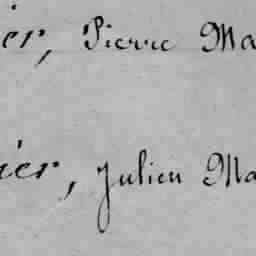 ier, Pierre Ma
nier, Julien Ma